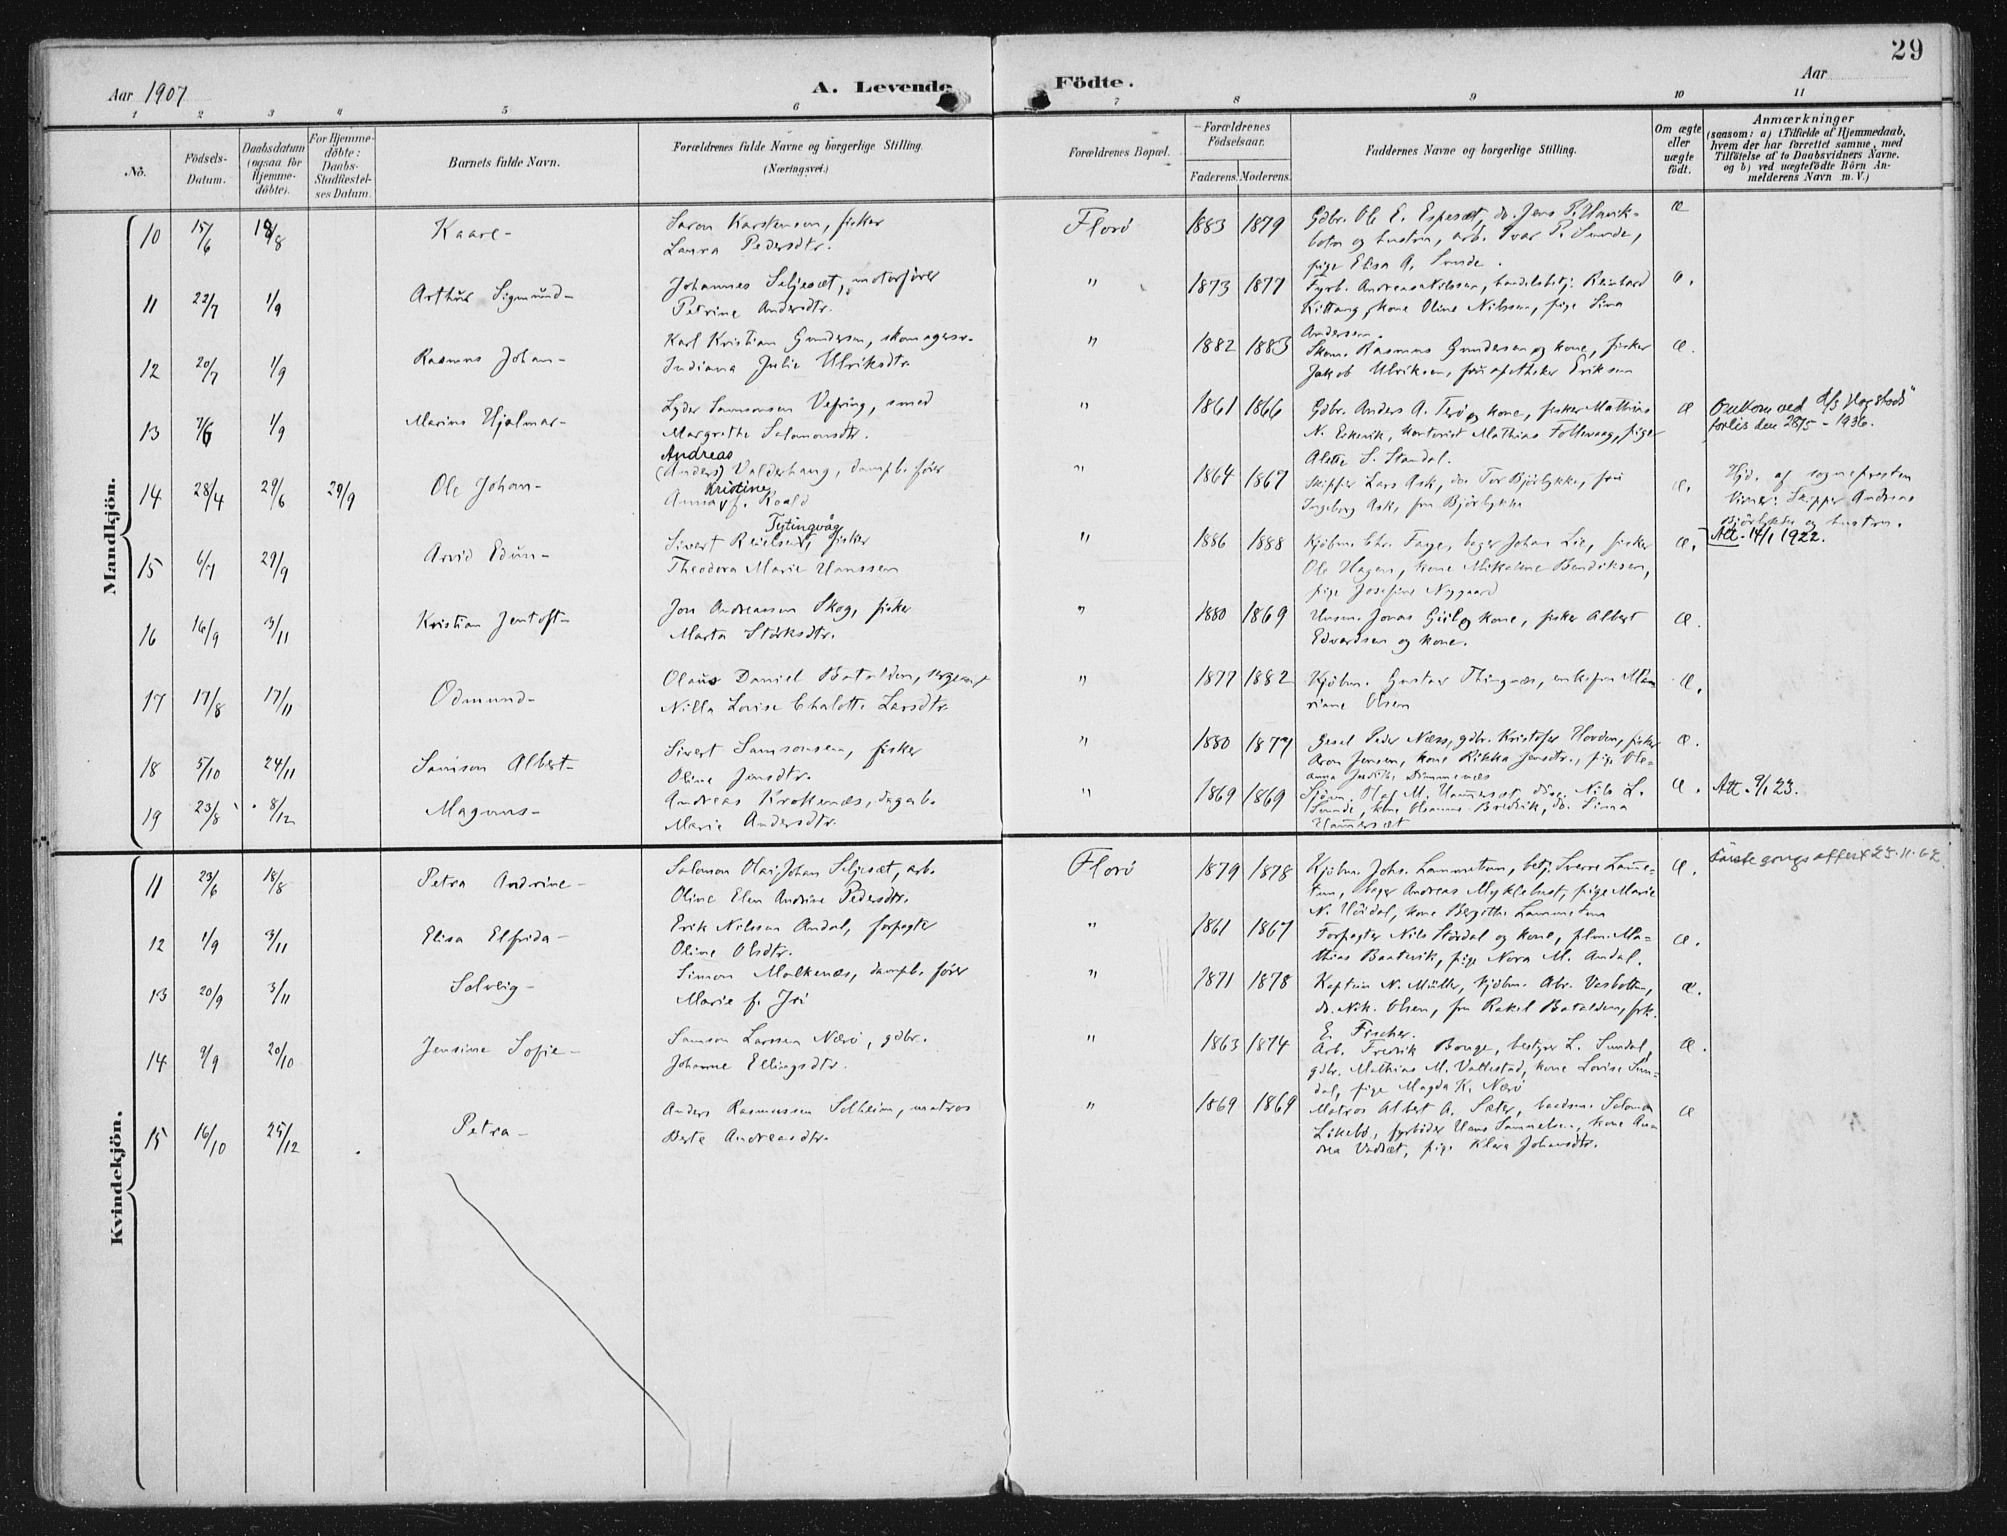 29
Aar 1907 A. Levende Födte. Aar
1 2 3 4 5 6 7 8 9 10 11
No.
Födsels-
Datum.
Daabsdatum
(ogsaa for
Hjemme-
döbte).
For Hjemme-
döbte:
Daabs-
Stadfæstel-
ses Datum.
Barnets fulde Navn.
Forældrenes fulde Navne og borgerlige Stilling.
(Næringsvei.)
Forældrenes Bopæl.
Forældrenes
Födselsaar.
Faderens. Moderens.
Faddernes Navne og borgerlige Stilling.
Om ægte
eller
uægte
födt.
Anmærkninger
(saasom: a) i Tilfælde af Hjemmedaab,
hvem der har forrettet samme, med
Tilföielse af to Daabsvidners Navne.
og b) ved uægtefödte Börn An-
melderens Navn m. V.)
Mandkjön.
10 15/6 18/8 Kaare-
Karstensen, fisker
Laura Pedersdtr.
Florø 1883 1879
Gdbr. Ole E. Espesæt, do. Jens P.
og hustru, arb. Ivar P. Sunde,
pige Elisa A. Sunde.
æ
11 22/7 1/9 Arthur Sigmund-
Johannes Seljesæt, motorfører
Petrine Andersdtr.
" 1873 1877
Fyrb. Andreas Nilssen, handelsbetj. Reinhard
Kittang, kone Oline Nilssen, pige Lina
Anderssen.
12 20/7 1/9 Rasmus Johan-
Karl Kristian Gundersen, skomagersv.
Indiana Julie Ulriksdtr.
" 1882 1883
Skom. Rasmus Gundersen og kone, fisker
Jakob Ulriksen, fru apotheker Eriksen
æ.
13 1/9 Marius Hjalmar-
Lyder Samsonsen Vefring, smed
Margrethe Salomonsdtr.
" 1861 1866
Gdbr. Anders A. Terø og kone, fisker Mathias
N. Eskevik, kontorist Mathias Follevaag, pige
Alette S. Standal.
æ
Omkom ved
forlis den 28/5 - 1936.
14 28/4 29/6 29/9 Ole Johan-
Andreas
(Anders) Valderhaug, dampb. fører
Kristine
Anna f. Roald
" 1864 1867
Skipper Lars Ask, do. Tor Bjørlykke, fru
Ingeborg Ask, fru Bjørlykke
æ.
Hjd. af sognepresten
Vidner: Skipper Andreas
Bjørlykke og hustru.
15 6/7 29/9 Arvid Edvin-
Tytingvåg
Sivert Reielsen, fisker
Theodora Marie Hanssen
" 1886 1888
Kjøbm. Chr. Faye, bager Johan Lie, fisker
Ole Hagen, kone Mikaline Bendiksen,
pige Josefine Nygaard
æ.
Att. 14/1 1922.
16 16/9 3/11 Kristian Jentoft-
Jon Andreassen Skog, fisker
Marta Størksdtr.
" 1880 1869
Husm. Jonas og kone, fisker Albert
Edvardsen og kone.
æ.
17 17/8 17/11 Odmund-
Olaus Daniel Batalden,
Nilla Lovise Charlotte Larsdtr.
" 1877 1882
Kjøbm. Gustav Thingnæs, enkefru Ma-
riane Olsen
æ.
18 5/10 24/11 Samson Albert-
Sivert Samsonsen, fisker
Oline Jensdtr.
" 1880 1877
Gesel Peder Næss, gdbr. Kristofer Hovden, fisker
Aron Jensen, kone Rikka Jensdtr., pige Ole-
anna Judithe Dimmenæs
æ.
19 23/8 8/12 Magnus-
Andreas Krokenæs, dagarb.
Marie Andersdtr.
" 1869 1869
Olaf M. Hammersæt, Nils L.
Sunde, do. Lina
Hammersæt
æ.
Att. 9/1 23.
Kvindekjön.
11 23/6 18/8 Petra Andrine-
Salomon Olai Johan Seljesæt, arb.
Oline Elen Andrine Pedersdtr.
Florø 1879 1878
Kjøbm. Johs. Lammetun, betj. Sverre Lamme-
tun, bager Andreas Myklebust, pige Marie
N. Hördal, kone Bergithe Lammetun
æ.
Første gangs attest 25.11.62
12 1/9 3/11 Elisa Elfrida-
Erik Nilssen Andal, forpagter
Oline Olsdtr.
" 1861 1867
Forpagter Nils Hördal og kone, plm. Ma-
thias Baatevik, pige Nora M. Andal.
æ.
13 20/9 3/11 Solveig-
Simon Malkenæs, dampb. fører
Marie f.
" 1871 1878
Kaptein N. Müller, kjøbm. Abr. Vasbotten,
do. Nik. Olsen, fru Rakel Batalden, frk.
E. Fischer.
æ.
14 9/9 20/10 Jensine Sofie-
Samson Larssen Nærø, gdbr.
Johanne Ellingsdtr.
" 1863 1874
Arb. Fredrik Bouge, bestyrer L. Sundal,
gdbr. Mathias M. Vallestad, kone Lovise Sun-
dal, pige Magda K. Nærø
æ.
15 16/10 25/12 Petra-
Anders Rasmussen Solheim, matros
Berte Andreasdtr.
" 1869 1869
Matros Albert A. Sæter, baadsm. Salomon
Likebø, fyrbøder Hans Sammelsen, kone An-
dr pige Klara Johansdtr.
æ